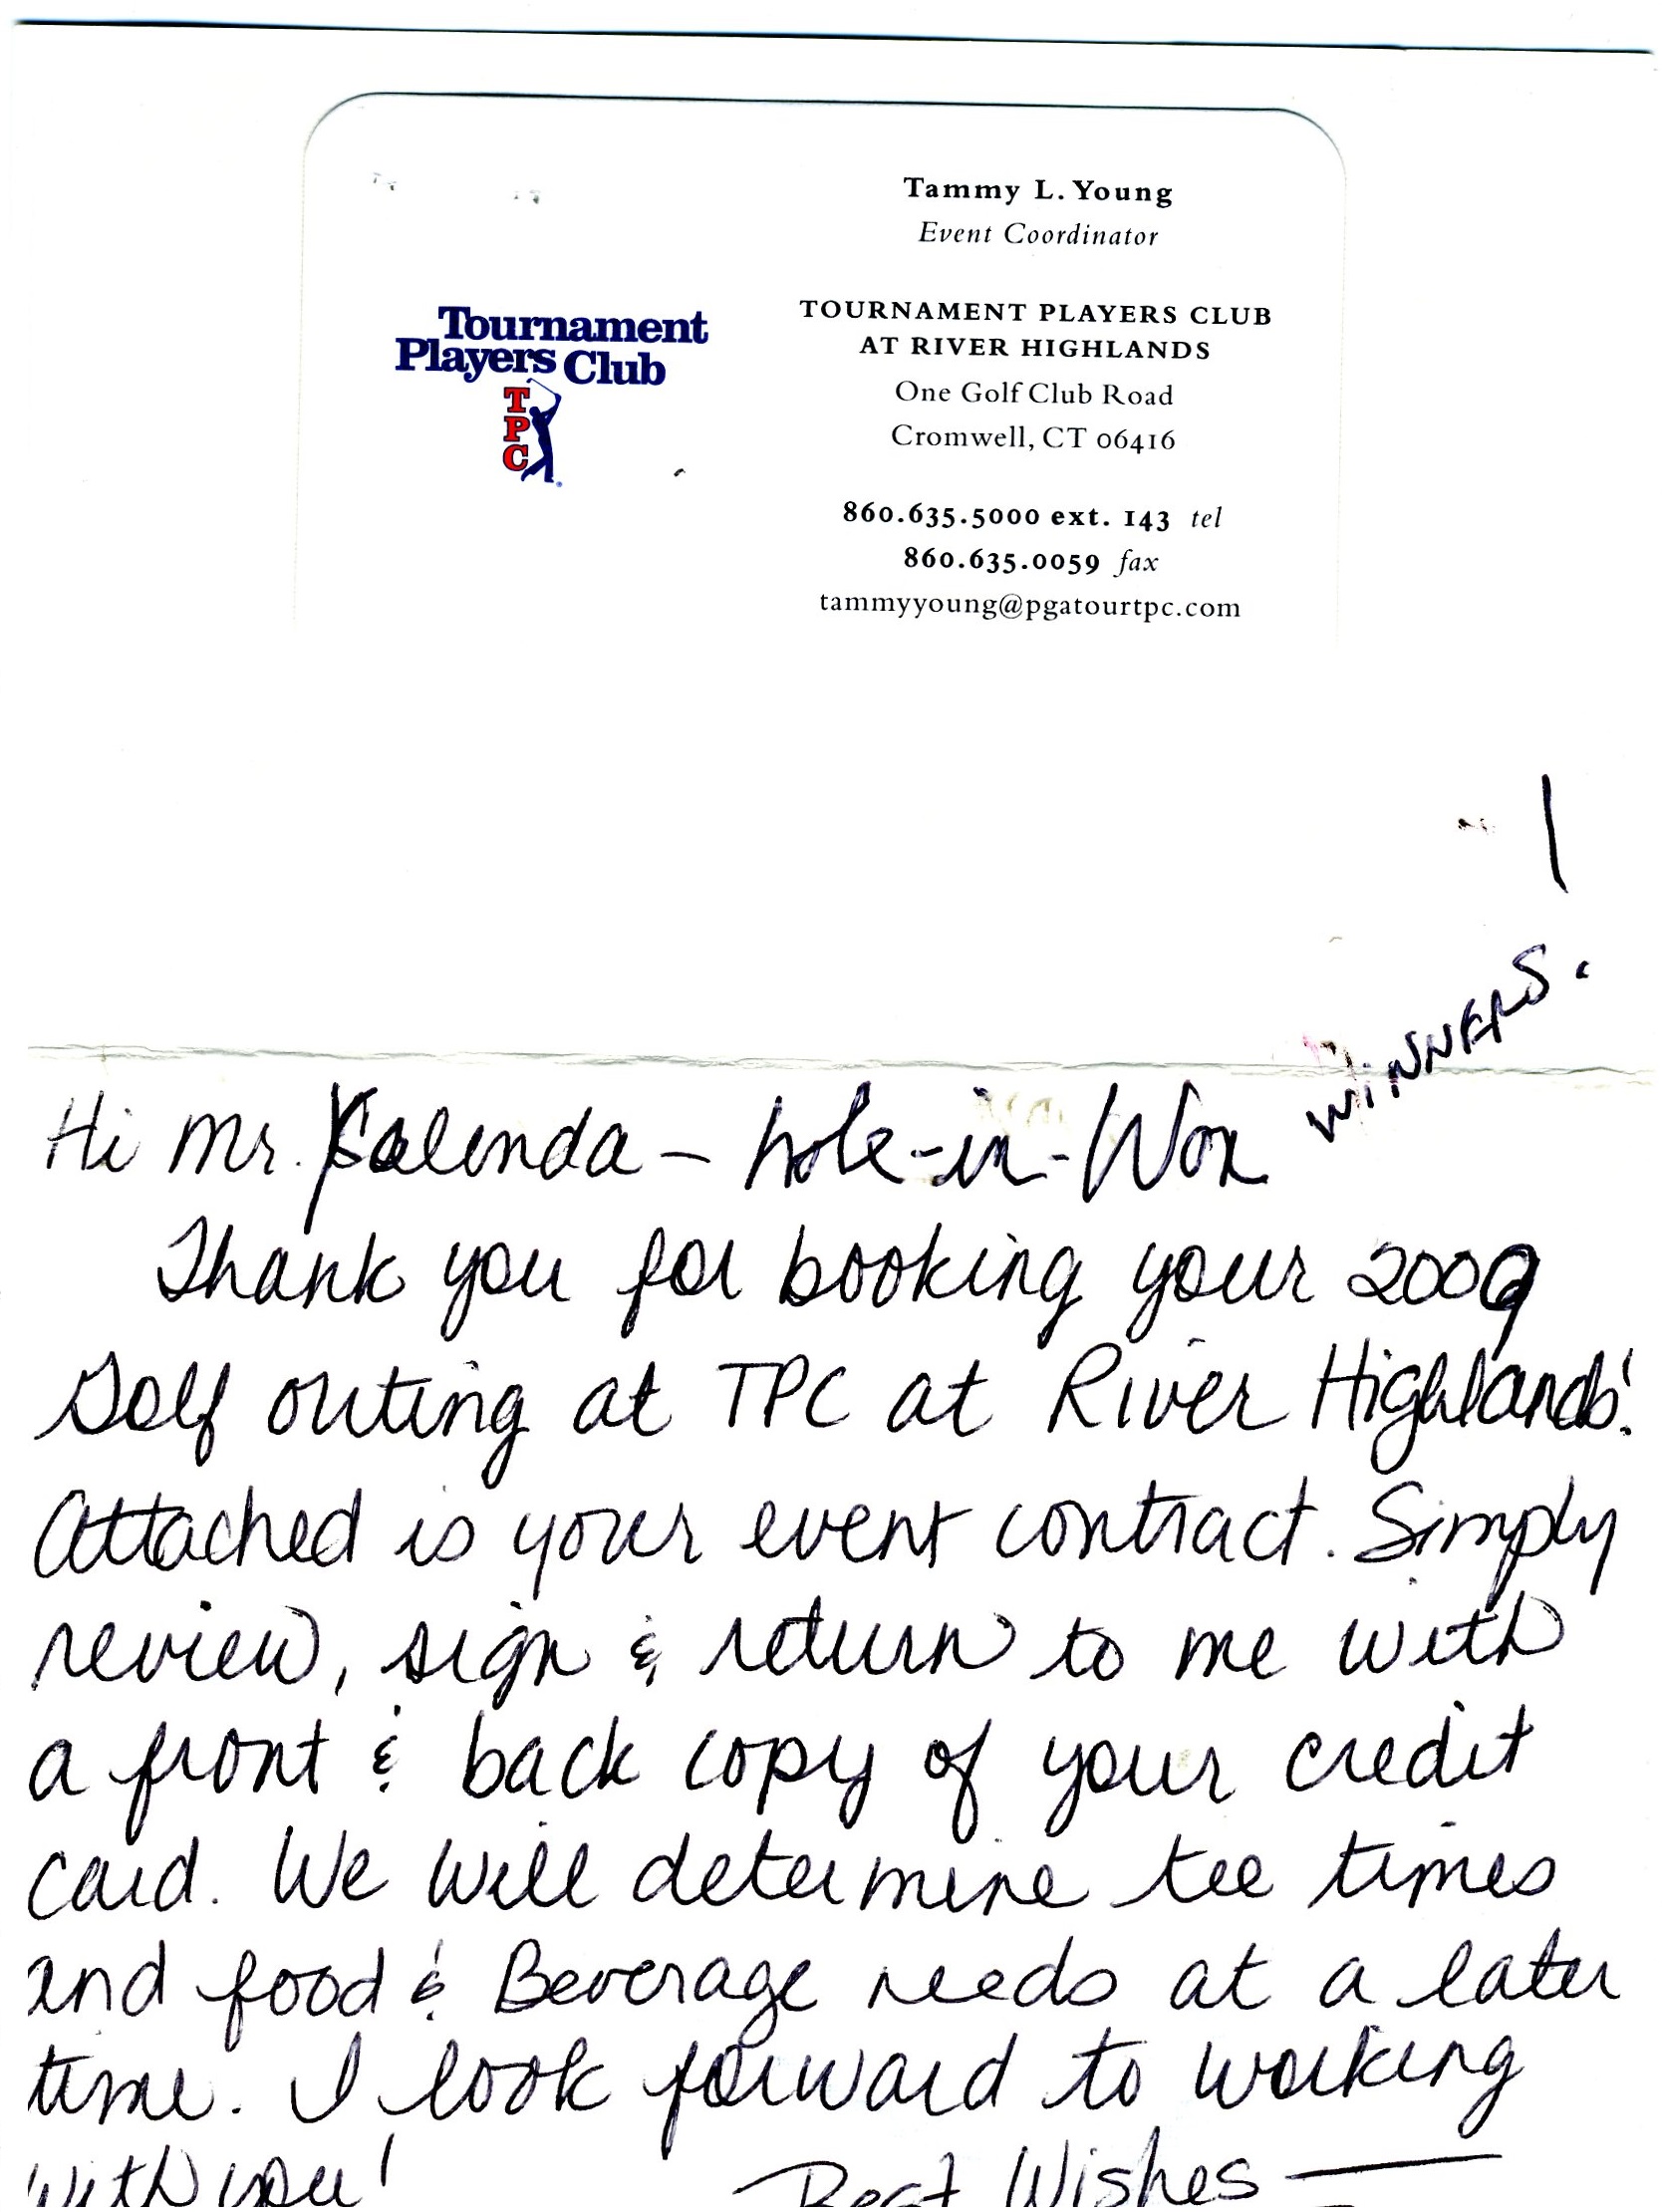 Tammy L. Young
Event Coordinator
Tournament
Players Club
TPC
TOURNAMENT PLAYERS CLUB
AT RIVER HIGHLANDS
One Golf Club Road
Cromwell, CT 06416
860.635.5000 ext. 143 tel
860.635.0059 fax
tammyyoung@pgatourtpc.com
WINNERS.
Hi Mr. Kalenda – hole-in-Won
Thank you for booking your 2009
Golf outing at TPC at River Highlands!
Attached is your event contract. Simply
review, sign & return to me with
a front & back copy of your credit
card. We will determine tee times
and food & Beverage needs at a later
time. I look forward to working
with you!
Best Wishes —